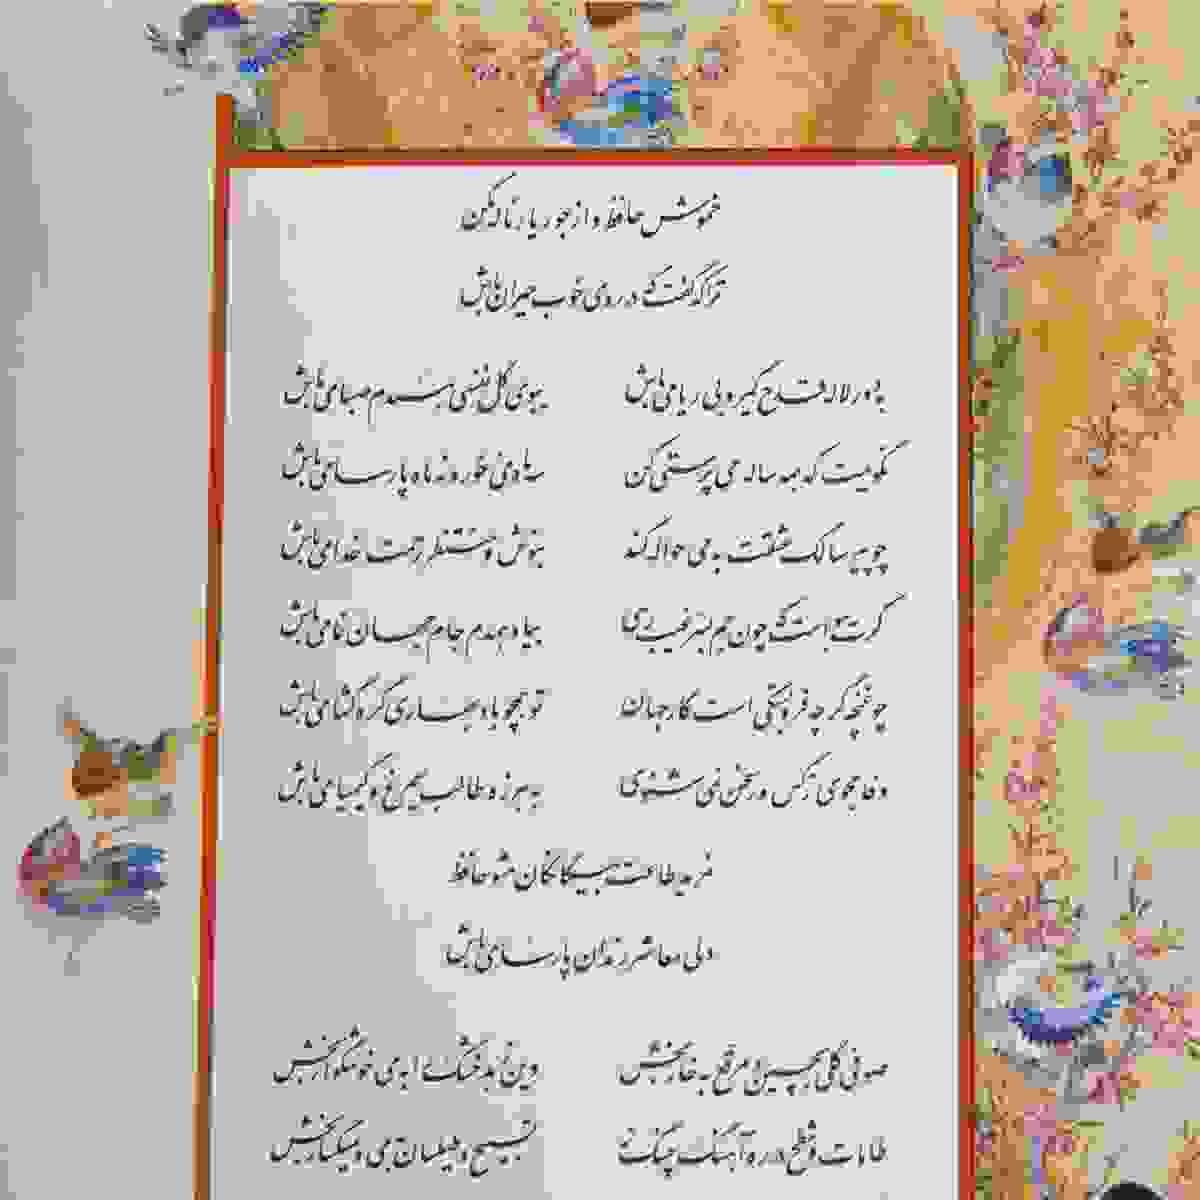 خموش حافظ و از جور یار ناله مکن
ترا که گفت که در روی خوب حیران باش
به دور لاله قدح گیر و بی ریا می‌باش ببوی گل نفسی همدم صبا می‌باش
نگویمت که همه ساله می پرستی کن سه ماه می خور و نه ماه پارسا می‌باش
چو پیر سالک عشقت به می حواله کند بنوش و منتظر رحمت خدا می‌باش
گرت هواست که چون جم بسر غیب رسی بیا و همدم جام جهان نما می‌باش
چو غنچه گر چه فروبستگی است کار جهان تو همچو باد بهاری گره گشا می‌باش
وفا مجوی ز کس ور سخن نمی شنوی به هرزه طالب سیمرغ و کیمیا می‌باش
مرید طاعت بیگانگان مشو حافظ
ولی معاشر رندان پارسا می‌باش
صوفی گلی بچین و مرقع به خار بخش وین زهد خشک را به می خوشگوار بخش
طامات و شطح در ره آهنگ چنگ نه تسبیح و طیلسان به می و میگسار بخش